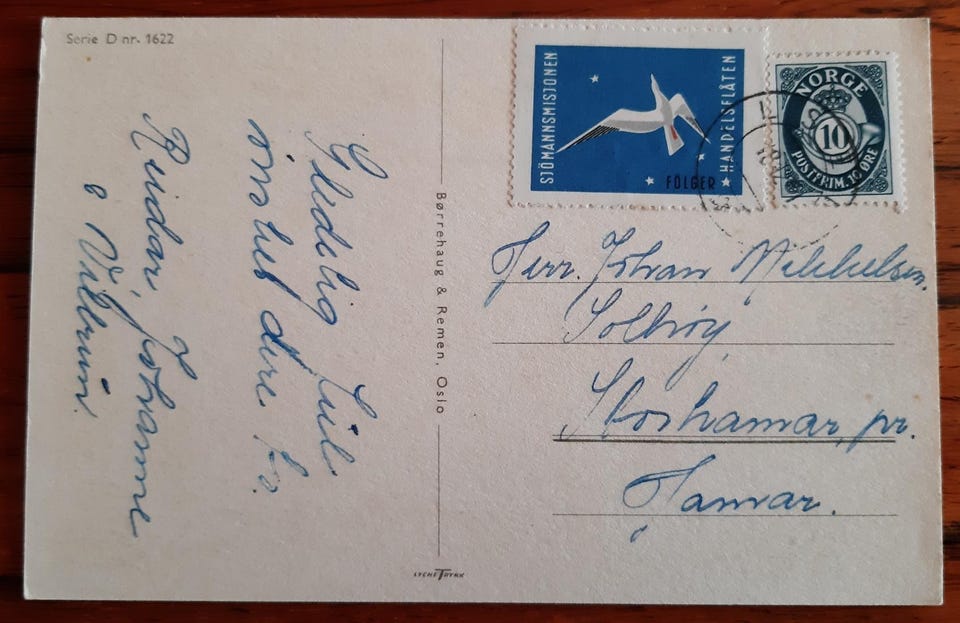 Serie D nr. 1622
Gledelig Jul
önskes dere fr.
Reidar, Johanne
o Vilbrun.
Børrehaug & Remen, Oslo
LYCHE TRYKK
SJÖMANNSMISJONEN
FÖLGER
HANDELSFLÅTEN
NORGE
10
POSTFRIM. 10 ØRE
Herr. Johan Mikkelsen.
Solhöy
Storhamar, pr.
Hamar.